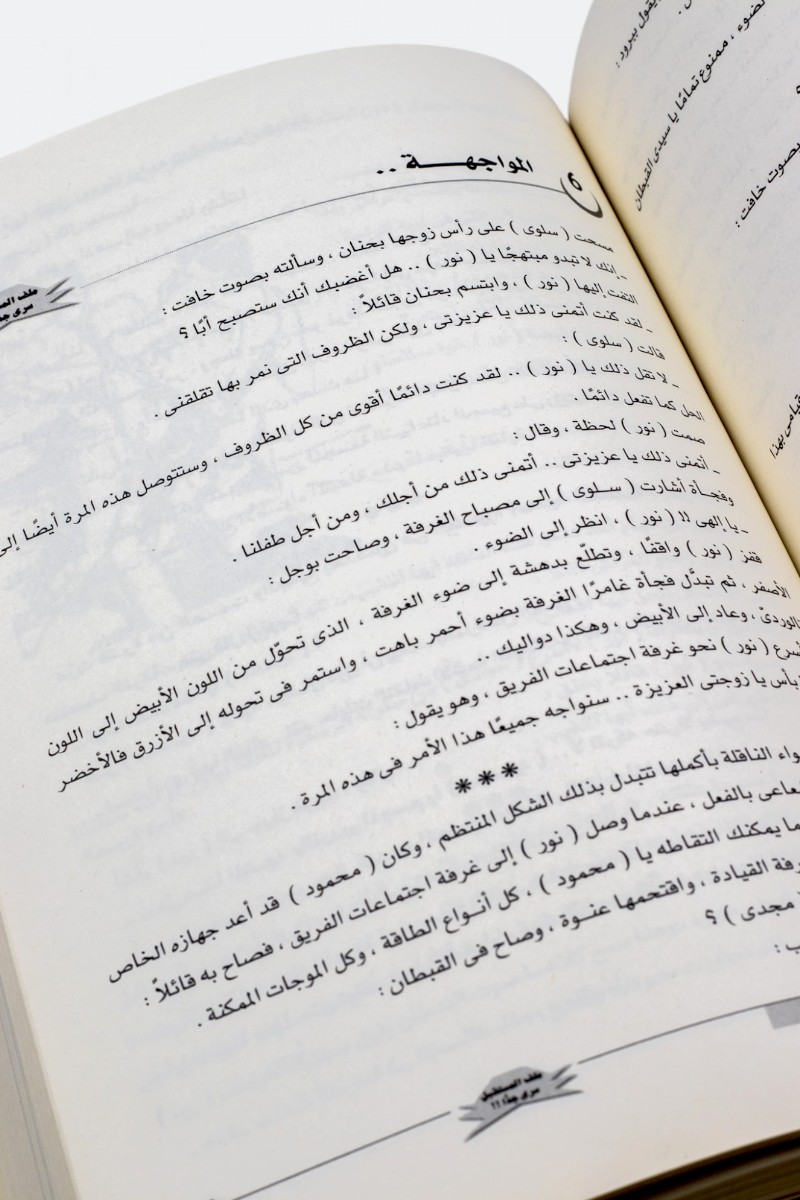 يقول ببرود :
الضوء ، ممنوع تمامًا يا سيدى القبطان
بصوت خافت :
قيامى بهذا
6
المواجهـــة ..
ملف
سرى
مسحت ( سلوى ) على رأس زوجها بحنان ، وسألته بصوت خافت :
ـ إنك لا تبدو مبتهجًا يا ( نور ) .. هل أغضبك أنك ستصبح أبًا ؟
التفت إليها ( نور ) ، وابتسم بحنان قائلاً :
ـ لقد كنت أتمنى ذلك يا عزيزتى ، ولكن الظروف التى نمر بها تقلقنى .
قالت ( سلوى ) :
ـ لا تقل ذلك يا ( نور ) .. لقد كنت دائمًا أقوى من كل الظروف ، وستتوصل هذه المرة أيضًا إلى
الحل كما تفعل دائمًا .
صمت ( نور ) لحظة ، وقال :
ـ أتمنى ذلك يا عزيزتى .. أتمنى ذلك من أجلك ، ومن أجل طفلنا .
وفجـأة أشارت ( سـلوى ) إلى مصباح الغرفة ، وصاحت بوجل :
ـ يا إلهى !! ( نور ) ، انظر إلى الضوء .
قفز ( نور ) واقفًا ، وتطلّع بدهشة إلى ضوء الغرفة ، الذى تحوّل من اللون الأبيض إلى اللون
الأصفر ، ثم تبدَّل فجأة غامرًا الغرفة بضوء أحمر باهت ، واستمر فى تحوله إلى الأزرق فالأخضر
الوردىّ ، وعاد إلى الأبيض ، وهكذا دواليك ..
أسرع ( نور ) نحو غرفة اجتماعات الفريق ، وهو يقول :
بأس يا زوجتى العزيزة .. سنواجه جميعًا هذا الأمر فى هذه المرة .
***
الناقلة بأكملها تتبدل بذلك الشكل المنتظم ، وكان ( محمود ) قد أعد جهازه الخاص
بالفعل ، عندما وصل ( نور ) إلى غرفة اجتماعات الفريق ، فصاح به قائلاً :
ما يمكنك التقاطه يا ( محمود ) ، كل أنـواع الطاقة ، وكل الموجات الممكنة .
القيادة ، واقتحمها عنـوة ، وصاح فى القبطان :
مجدى ) ؟
ملف المستقبل
سرى جدًا !!